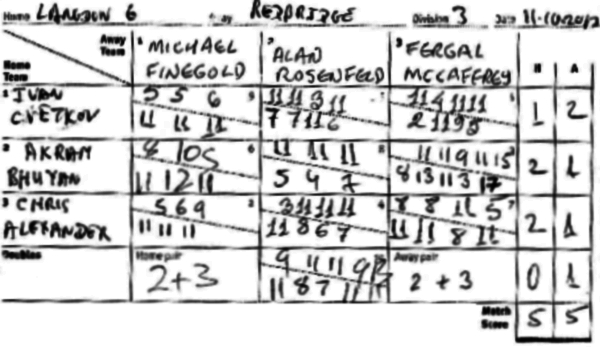 Home LANGDON 6 Away REDBRIDGE Division 3 Date 11-10-2012
Away Team
Home Team
1 MICHAEL FINEGOLD
2 ALAN ROSENFELD
3 FERGAL MCCAFFREY
H A
1 IVAN CVETKOV
5 5 6
11 11 11
11 11 3 11
7 7 11 6
11 4 11 11
2 11 9 8
1 2
2 AKRAM BHUYAN
4 10 5
11 12 11
11 11 11
5 4 7
11 11 9 11 15
8 13 11 3 17
2 1
3 CHRIS ALEXANDER
5 6 9
11 11 11
3 11 11 11
11 8 6 7
8 8 11 5
11 11 8 11
2 1
Doubles
Home pair
2+3
9 11 11 9
11 8 7 11
Away pair
2 + 3
0 1
Match Score 5 5